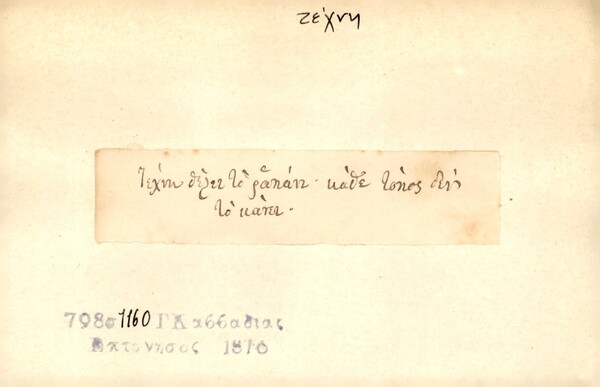 τέχνη
Τέχνη θέλει τὸ ῥαπάνι· κάθε τόπος δὲν
τὸ κάνει.
798σ1160 Γ Καββαδιας
Επτονησος 1876